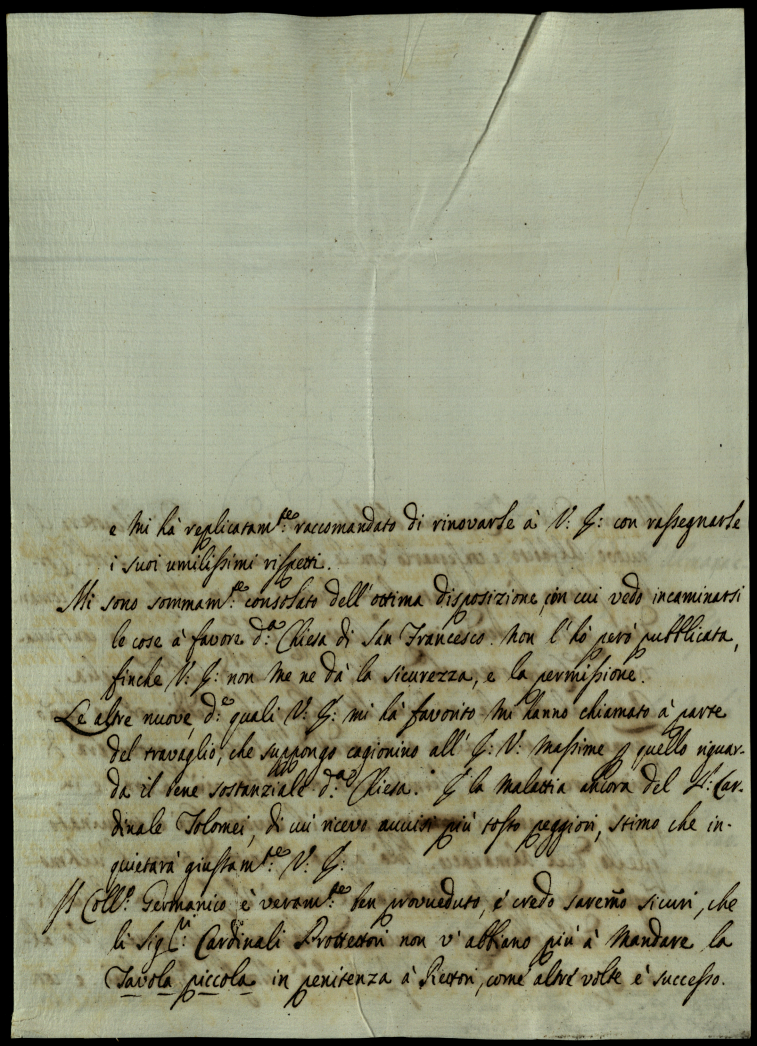 e mi hà replicatam:te raccomandato di rinovarle à V: G: con rassegnarle
i suoi umilissimi rispetti.
Mi sono sommam:te consolato dell'ottima disposizione, con cui vedo incaminarsi
le cose à favore d:a Chiesa di San Francesco. Non l'hò però pubblicata,
finche V: G: non me ne dà la sicurezza, e la permissione.
Le altre nuove, d:e quali V: G: mi hà favorito mi hanno chiamato à parte
del travaglio, che suppongo cagionino all' G: V: massime p quello riguar-
da il bene sostanziale d:a Chiesa. E la malattia ancora del S: Car-
dinale Tolomei, di cui ricevo avvisi più tosto peggiori, stimo che in-
quietarà giustam:te V: G:
Il Coll:o Germanico è veram:te ben proveduto, e credo saremo sicuri, che
li Sig:ri Cardinali Protettori non v'abbiano più à mandare la
Tavola piccola in penitenza à Rettori, come altre volte è successo.